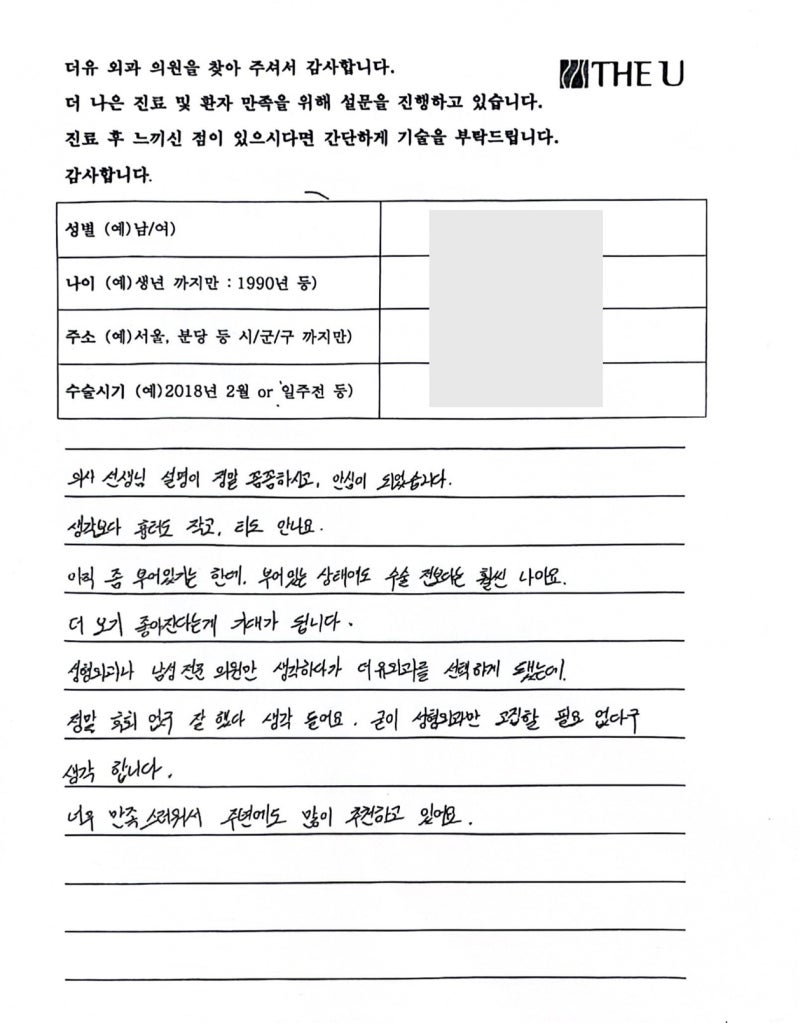 더유 외과 의원을 찾아 주셔서 감사합니다.
THE U
더 나은 진료 및 환자 만족을 위해 설문을 진행하고 있습니다.
진료 후 느끼신 점이 있으시다면 간단하게 기술을 부탁드립니다.
감사합니다.
성별 (예)남/여)
나이 (예)생년 까지만 : 1990년 등)
주소 (예)서울, 분당 등 시/군/구 까지만)
수술시기 (예)2018년 2월 or 일주전 등)
의사 선생님 설명이 정말 꼼꼼하시고, 안심이 되었습니다.
생각보다 흉터도 작고, 티도 안나요.
아직 좀 부어있기는 한데. 부어있는 상태여도 수술 전보다는 훨씬 나아요.
더 보기 좋아진다는게 기대가 됩니다.
성형외과나 남성전문 의원만 생각하다가 더유외과를 선택하게 됐는데.
정말 후회 없구 잘 했다 생각 들어요. 굳이 성형외과만 고집할 필요 없다구
생각 합니다.
너무 만족스러워서 주변에도 많이 추천하고 있어요.